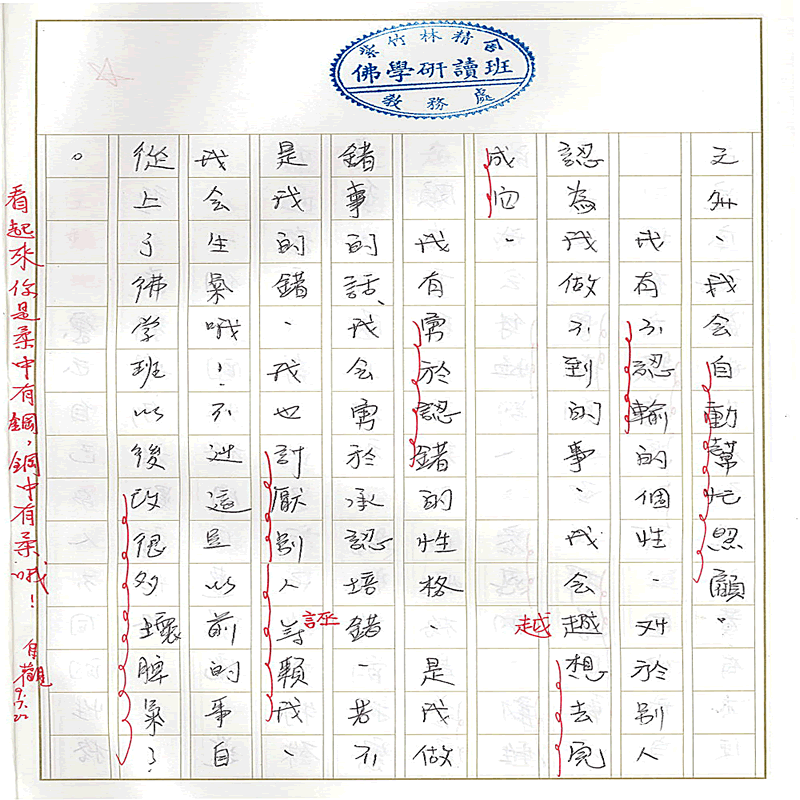 紫竹林精舍
佛學研讀班
教務處
之外、我会自動幫忙照顧。
我有不認輸的個性、对於别人
認為我做不到的事、我会越想去完
越
成它。
我有勇於認錯的性格、是我做
錯事的話、我会勇於承認培錯、若不
是我的錯、我也討厭别人 顆我、
誣
我会生氣哦!不过這是以前的事自
從上了佛学班以後改很多壞脾氣了
。
看起來你是柔中有鋼,鋼中有柔哦!
自觀
9.7.22